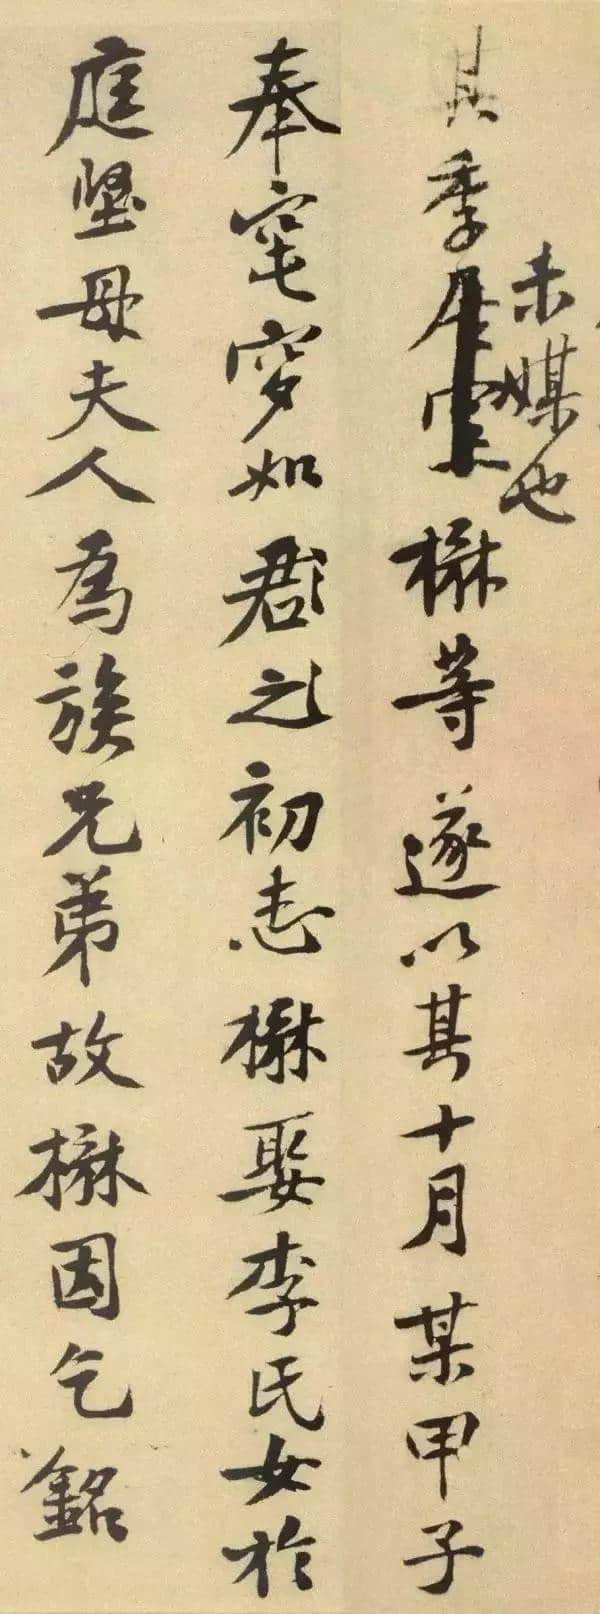 未媒也
其季等遂以其十月某甲子
奉窀穸如君之初志娶李氏女於
庭堅母夫人為族兄弟故因乞銘